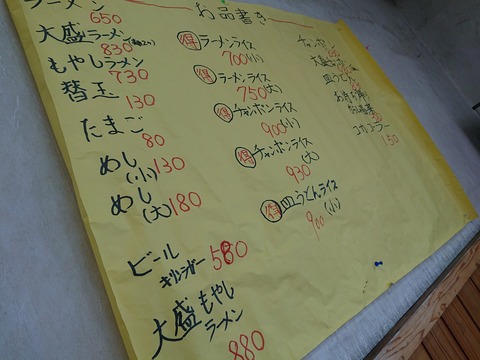 お品書き
ラーメン
650
大盛ラーメン
830
もやしラーメン
730
替玉
130
たまご
80
めし
(小) 130
めし
(大) 180
ビール
キリンラガー 580
大盛もやし
ラーメン
880
得 ラーメンライス
700 (小)
得 ラーメンライス
750 (大)
得 チャンポンライス
900 (小)
得 チャンポンライス
(大)
930
得 皿うどんライス
900 (小)
チャンポン
大盛
皿うどん
コカコーラー
150